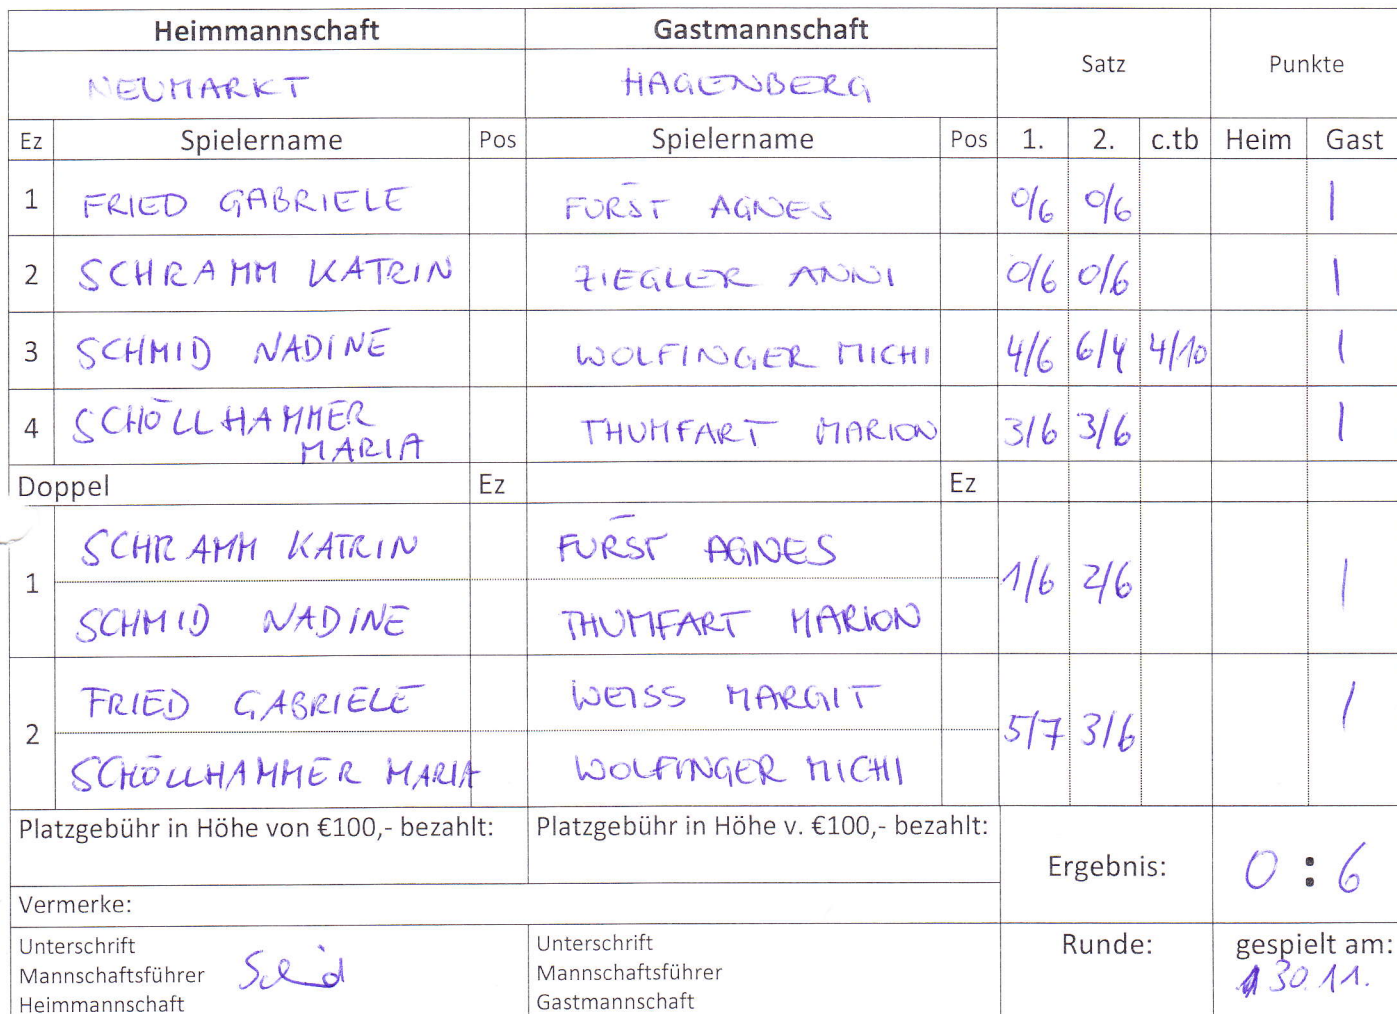 Heimmannschaft Gastmannschaft Satz Punkte
NEUMARKT HAGENBERG
Ez Spielername Pos Spielername Pos 1. 2. c.tb Heim Gast
1 FRIED GABRIELE FÜRST AGNES 0/6 0/6 1
2 SCHRAMM KATRIN ZIEGLER ANNI 0/6 0/6 1
3 SCHMID NADINE WOLFINGER MICHI 4/6 6/4 4/10 1
4 SCHÖLLHAMMER THUMFART MARION 3/6 3/6 1
MARIA
Doppel Ez Ez
SCHRAMM KATRIN FÜRST AGNES
1 1/6 2/6 1
SCHMID NADINE THUMFART MARION
FRIED GABRIELE WEISS MARGIT
2 5/7 3/6 1
SCHÖLLHAMMER MARIA WOLFINGER MICHI
Platzgebühr in Höhe von €100,- bezahlt: Platzgebühr in Höhe v. €100,- bezahlt:
Ergebnis: 0 : 6
Vermerke:
Unterschrift Unterschrift Runde: gespielt am:
Mannschaftsführer Mannschaftsführer 30.11.
Heimmannschaft Gastmannschaft